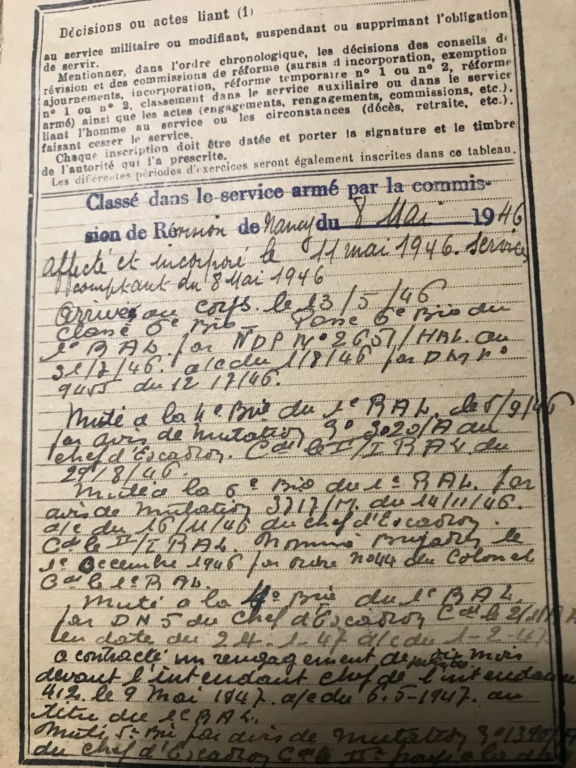 Décisions ou actes liant (1)
au service militaire ou modifiant, suspendant ou supprimant l'obligation
de servir.
Mentionner, dans l'ordre chronologique, les décisions des conseils de
révision et des commissions de réforme (sursis d'incorporation, exemption
ajournements, incorporation, réforme temporaire n° 1 ou n° 2, réforme
n° 1 ou n° 2, classement dans le service auxiliaire ou dans le service
armé) ainsi que les actes (engagements, rengagements, commissions, etc.).
liant l'homme au service ou les circonstances (décès, retraite, etc.).
faisant cesser le service.
Chaque inscription doit être datée et porter la signature et le timbre
de l'autorité qui l'a prescrite.
Les différentes périodes d'exercices seront également inscrites dans ce tableau.
Classé dans le service armé par la commis-
sion de Révision de Nancy du 8 Mai 1946
affecté et incorporé le 11 mai 1946. Service
comptant du 8 Mai 1946
Arrivé au corps le 13/5/46
Classé 6e Bie Passé 6e Bie du
1e RAL par NDP No 2657/ au
31/7/46. a/c du 1/8/46 par DM No
du 12 /46.
Muté à la 4e Bie du 1e RAL. le 5/9/46
par avis de mutation 3020/A du
chef d'Escadron. Cdt le I/1 RAL du
29/8/46.
Muté à la 6e Bie du 1e RAL. par
avis de mutation 3717/M. du 14/11/46.
a/c du 16/11/46 du chef d'Escadron.
Cdt le II/1 RAL. Nommé Brigadier le
1e Décembre 1946 par ordre No 44 du Colonel
Cdt le 1e RAL.
Muté à la 4e Bie du 1e RAL.
par DN 5 du Chef d'Escadron Cdt le
en date du 24-1-47 a/c du 1-2-47
a contracté un rengagement de mois
devant l'intendant chef de l'intendance
412. le 9 Mai 1947. a/c du 6-5-1947. au
titre du 1e RAL.
Muté 5e Bie par avis de Mutation
du chef d'Escadron Cdt le